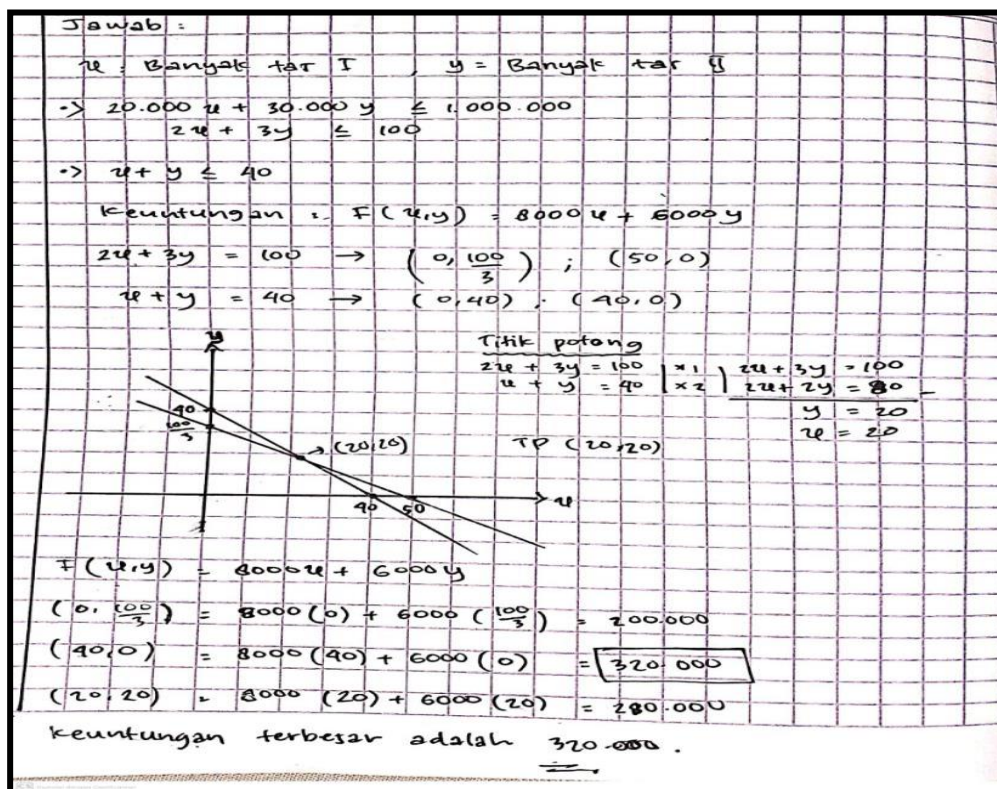 Jawab :
x : Banyak tar I , y = Banyak tar II
•> 20.000 x + 30.000 y ≤ 1.000.000
2x + 3y ≤ 100
•> x + y ≤ 40
Keuntungan : F(x,y) = 8000x + 6000y
2x + 3y = 100 → (0, 100/3) ; (50,0)
x + y = 40 → (0,40) . (40,0)
Titik potong
2x + 3y = 100 | x 1 | 2x + 3y = 100
x + y = 40 | x 2 | 2x + 2y = 80 -
y = 20
x = 20
TP (20,20)
y
40
100/3
(20,20)
40 50 x
F(x,y) = 8000x + 6000y
(0, 100/3) = 8000(0) + 6000 (100/3) = 200.000
(40,0) = 8000(40) + 6000(0) = 320.000
(20,20) = 8000 (20) + 6000 (20) = 280.000
Keuntungan terbesar adalah 320.000.